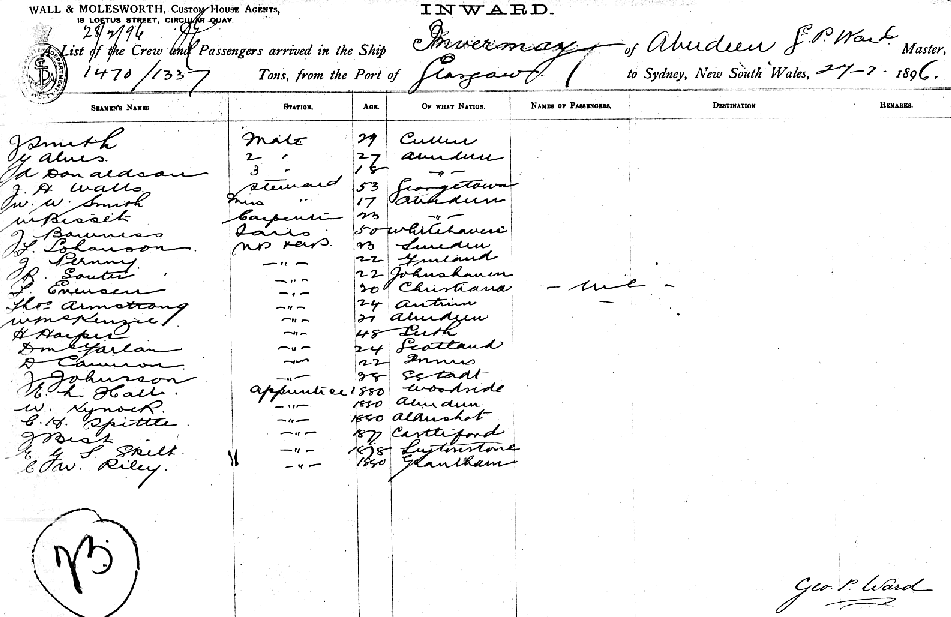 WALL & MOLESWORTH, CUSTOM HOUSE AGENTS,
18 LOFTUS STREET, CIRCULAR QUAY.
28/2/96
INWARD.
A List of the Crew and Passengers arrived in the Ship Invermay of Aberdeen G P Ward Master,
1470/1337 Tons, from the Port of Glasgow to Sydney, New South Wales, 27-2- 1896.
SEAMEN'S NAMES STATION. AGE. OF WHAT NATION. NAMES OF PASSENGERS. DESTINATION REMARKS.
J Smith Mate 29 Cullen
Y Alves 2 " 27 Aberdeen
A Donaldson 3 " 18 -"-
J. H. Watts Steward 53 Georgetown
W. W. Smith " 17 Aberdeen
W Bisset Carpenter 23 -"-
J Bowness 50 Whitehaven
L. Johanson 23 Sweden
J Penny -"- 22
R. Souter -"- 22 Johnshaven
L. Evensen -"- 20 Christiana - nil -
Thos Armstrong -"- 24 Antrim
W McKenzie -"- 21 Aberdeen
H Harper -"- 48 Leith
D McFarlan -"- 24 Scotland
D Cameron -"- 22
J Johnsson -"- 28
H. L. Hall Apprentice 1880 Woodside
W. Kynoch -"- 1880 Aberdeen
C. H. Spittle -"- 1880 Aldershot
J Bist -"- 187 Castleford
E G L Skilt -"- 1878 Leytonstone
C W. Riley. -"- 1880 Grantham
23
Geo. P. Ward